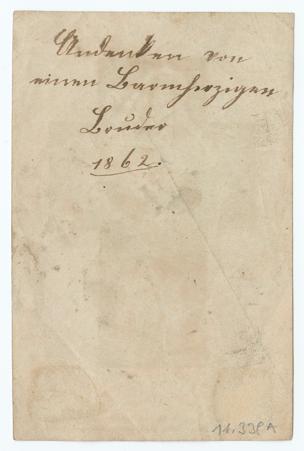 Andenken von
einen Barmherzigen
Bruder
1862.
11.339A